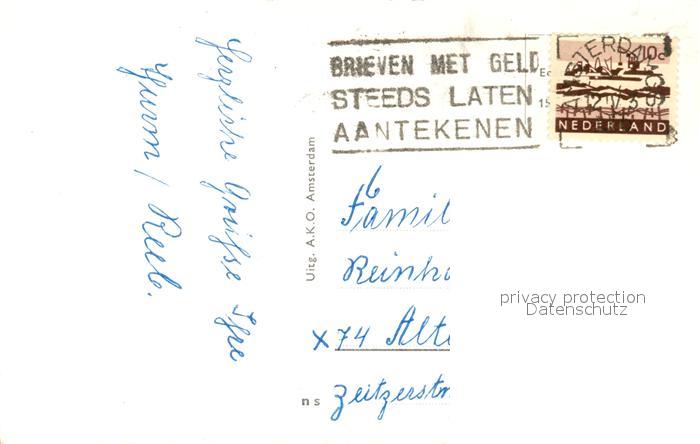 Herzliche Grüsse Ihre
BRIEVEN MET GELD
STEEDS LATEN
AANTEKENEN
10c
NEDERLAND
Uitg. A.K.O. Amsterdam
Famil
Reinh
x 74 Alte
Zeitzerstr
ns
privacy protection
Datenschutz